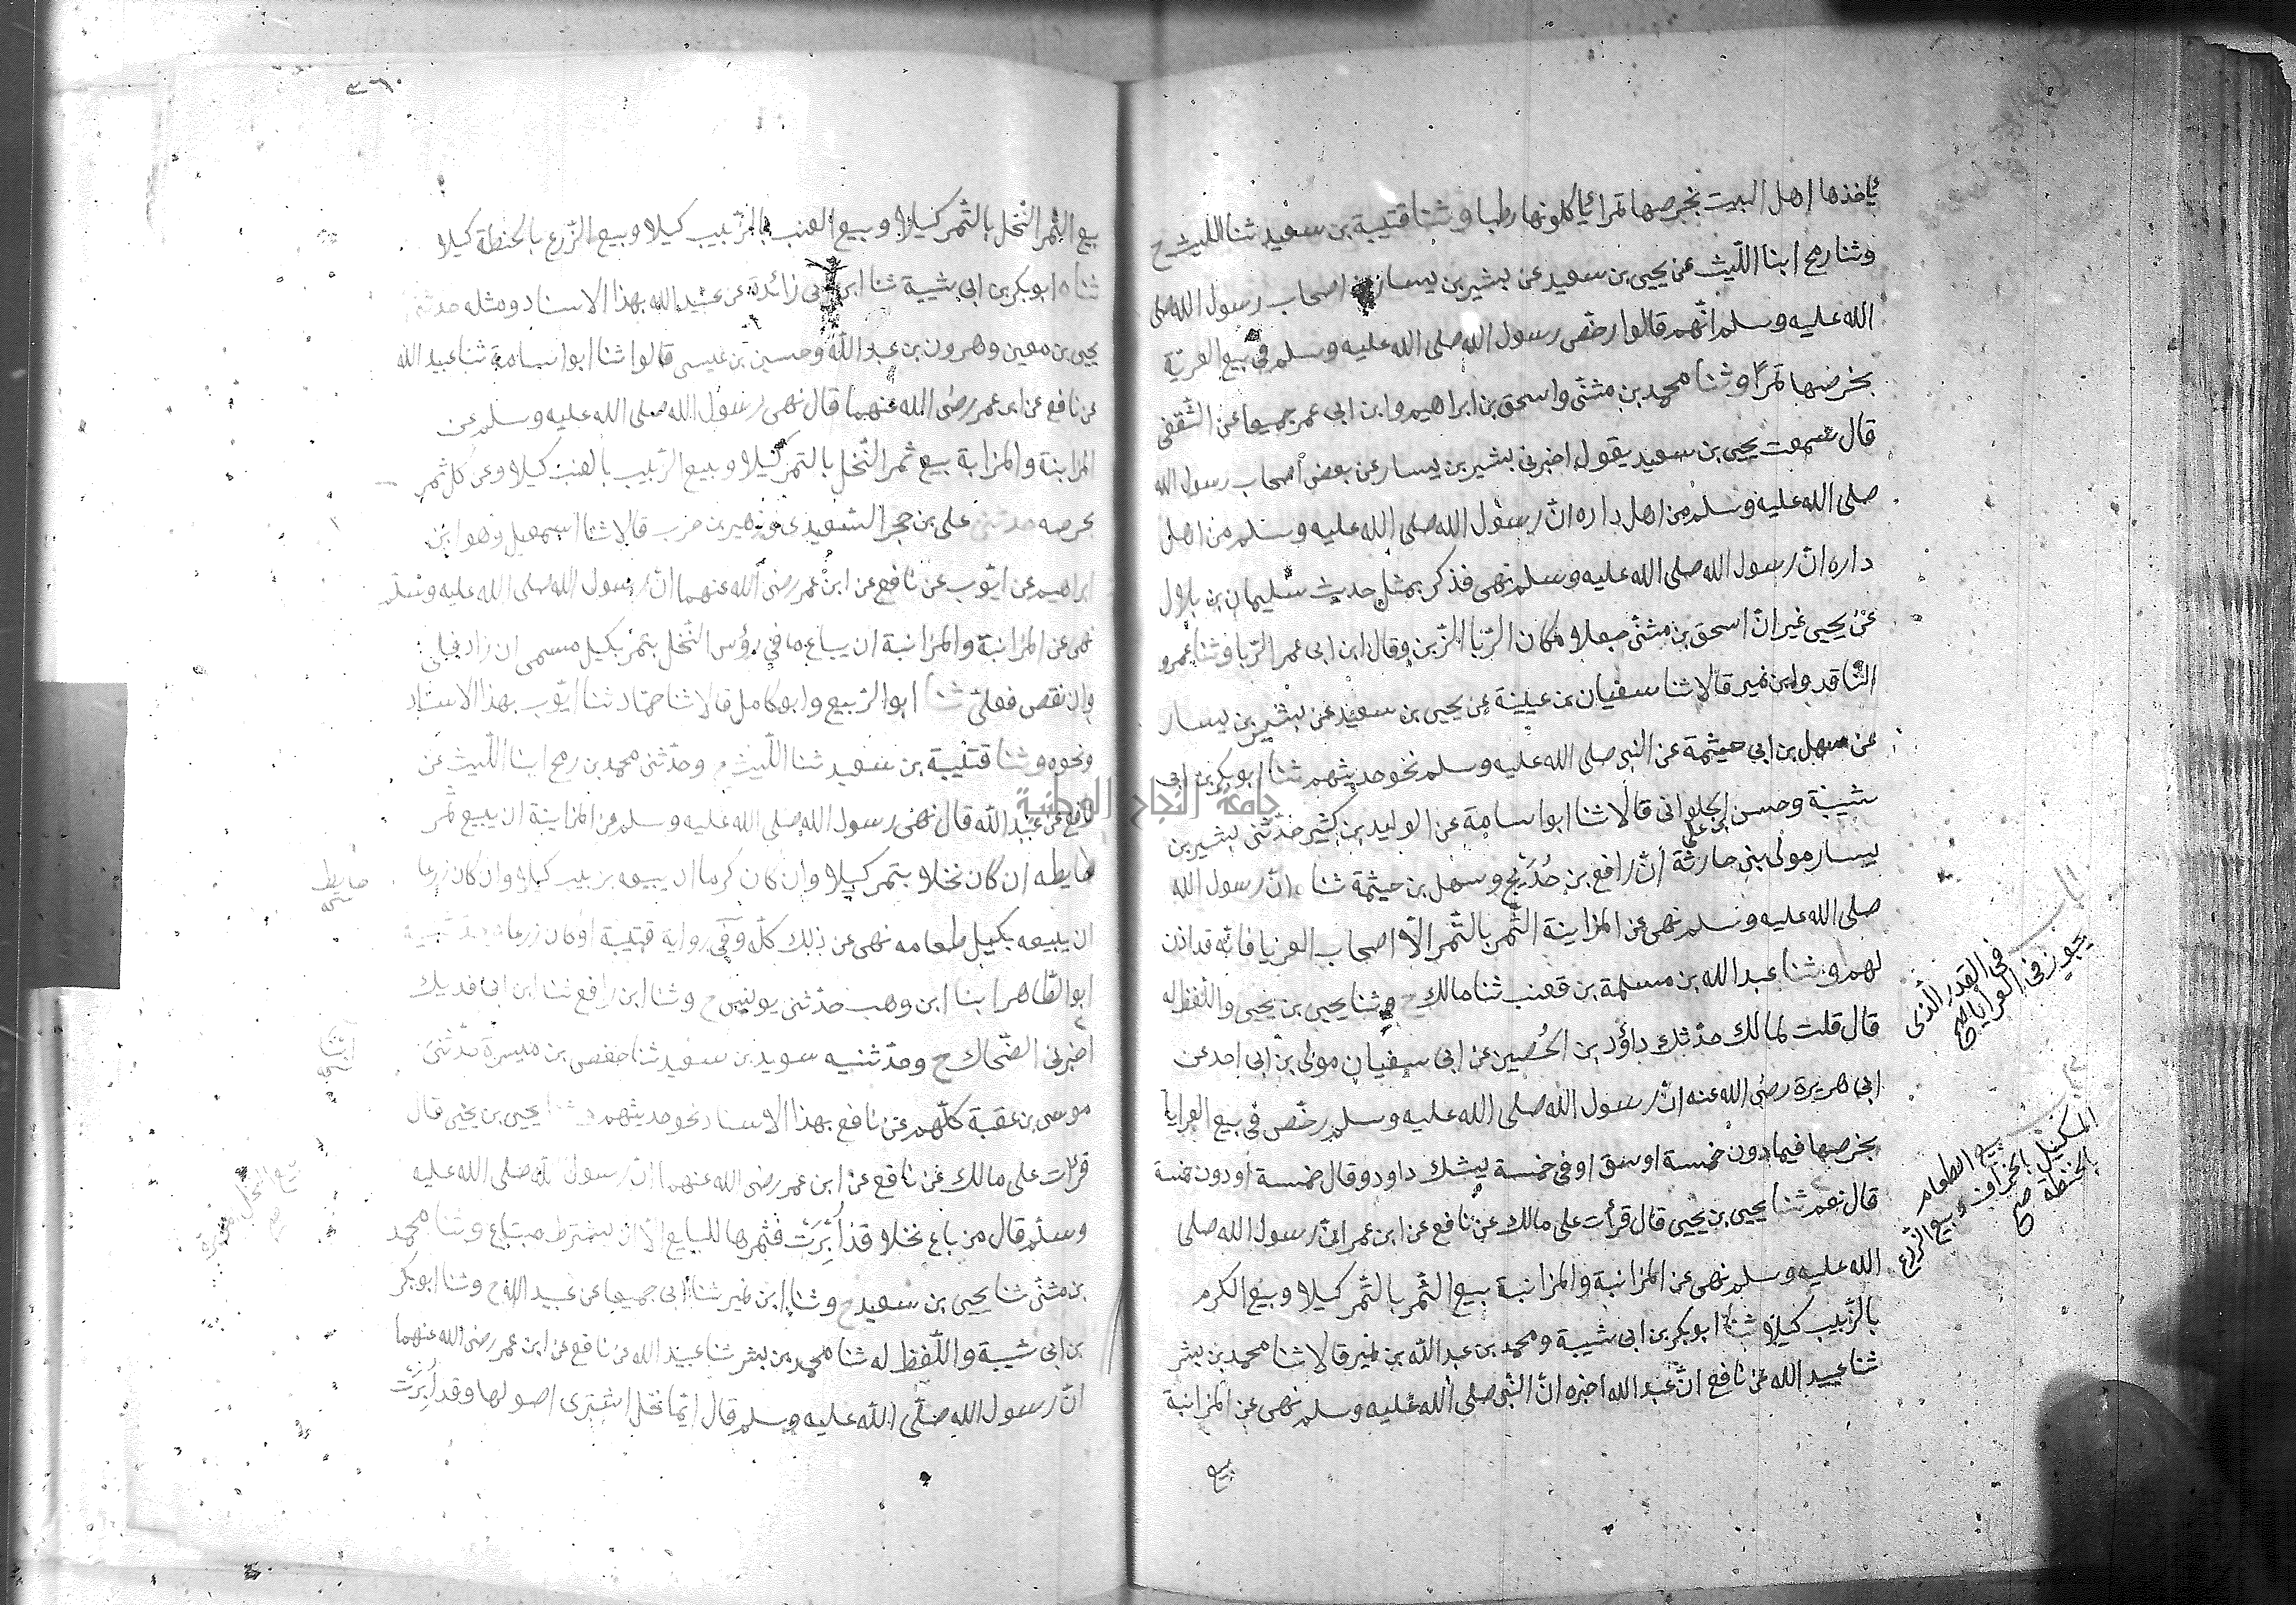 يأخذها اهل البيت بخرصها تمرا يأكلونها رطبا وثنا قتيبة بن سعيد ثنا الليث ح
وثنا رمح ابنا الليث عن يحيى بن سعيد عن بشير بن يسار اصحاب رسول الله صلى
الله عليه وسلم انهم قالوا رخص رسول الله صلى الله عليه وسلم في بيع العرية
بخرصها تمرا وثنا محمد بن مثنى واسحق بن ابراهيم وابن ابي عمر جميعا عن الثقفى
قال سمعت يحيى بن سعيد يقول اخبرنى بشير بن يسار عن بعض اصحاب رسول الله
صلى الله عليه وسلم من اهل داره ان رسول الله صلى الله عليه وسلم من اهل
داره ان رسول الله صلى الله عليه وسلم نهى فذكر بمثل حديث سليمان بن بلال
عن يحيى غير ان اسحق بن مثنى جعلا مكان الربا الزبن وقال ابن ابى عمر الربا وثنا عمرو
الناقد وابن نمير قالا ثنا سفيان بن عيينة عن يحيى بن سعيد عن بشير بن يسار
عن سهل بن ابى حيثمة عن النبى صلى الله عليه وسلم نحو حديثهم ثنا ابو بكر بن ابى
شيبة وحسن بن على الحلوانى قالا ثنا ابو اسامة عن الوليد بن كثير حدثنى بشير بن
يسار مولى بنى حارثة ان رافع بن خديج وسهل بن حيثمة ثنا ان رسول الله
صلى الله عليه وسلم نهى عن المزابنة الثمر بالتمر الا اصحاب العرايا فانه قد اذن
لهم وثنا عبد الله بن مسلمة بن قعنب ثنا مالك ح وثنا يحيى بن يحيى واللفظ له
قال قلت لمالك حدثك داؤد بن الحصين عن ابى سفيان مولى بن ابى احد عن
ابى هريرة رضى الله عنه ان رسول الله صلى الله عليه وسلم رخص في بيع العرايا
بخرصها فيما دون خمسة اوسق او فى خمسة يشك داود وقال خمسة او دون خمسة
قال نعم ثنا يحيى بن يحيى قال قرأت على مالك عن نافع عن ابن عمر ان رسول الله صلى
الله عليه وسلم نهى عن المزابنة والمزابنة بيع الثمر بالتمر كيلا وبيع الكرم
بالزبيب كيلا ثنا ابو بكر بن ابى شيبة ومحمد بن عبد الله بن نمير قالا ثنا محمد بن بشر
ثنا عبيد الله عن نافع ان عبد الله اخبره ان النبى صلى الله عليه وسلم نهى عن المزابنة
بيع
باب في القدر الذى
يجوز فى العرايا
بيع الطعام
المكيل بالجزاف وبيع الزرع
بالحنطة
٣٦٠
بيع الثمر النخل بالتمر كيلا وبيع العنب بالزبيب كيلا وبيع الزرع بالحنطة كيلا
ثناه ابو بكر بن ابى شيبة ثنا ابن ابى زائدة عن عبيد الله بهذا الاسناد ومثله حدثنى
يحيى بن معين وهرون بن عبد الله وحسين بن عيسى قالوا ثنا ابو اسامة ثنا عبيد الله
عن نافع عن ابن عمر رضى الله عنهما قال نهى رسول الله صلى الله عليه وسلم عن
المزابنة والمزابنة بيع ثمر النخل بالتمر كيلا وبيع الزبيب بالعنب كيلا وعن كل ثمر
بخرصه حدثنى على بن حجر السعيدى وزهير بن حرب قالا ثنا اسمعيل وهو ابن
ابراهيم عن ايوب عن نافع عن ابن عمر رضى الله عنهما ان رسول الله صلى الله عليه وسلم
نهى عن المزابنة والمزابنة ان يباع ما في رؤس النخل بتمر بكيل مسمى ان زاد فلى
وان نقص فعلى ثنا ابو الربيع وابو كامل قالا ثنا حماد ثنا ايوب بهذا الاسناد
ونحوه وثنا قتيبة بن سعيد ثنا الليث ح وحدثنى محمد بن رمح ابنا الليث عن
نافع عن عبد الله قال نهى رسول الله صلى الله عليه وسلم عن المزابنة ان يبيع ثمر
حايطه ان كان نخلا بتمر كيلا وان كان كرما ان يبيعه بزبيب كيلا وان كان زرعا
ان يبيعه بكيل طعامه نهى عن ذلك كله وفى رواية قتيبة او كان زرعا
ابو الطاهر ابنا ابن وهب حدثنى يونس ح وثنا ابن رافع ثنا ابن ابى فديك
اخبرنى الضحاك ح وحدثنيه سويد بن سعيد ثنا حفص بن ميسرة حدثنى
موسى بن عقبة كلهم عن نافع بهذا الاسناد نحو حديثهم ثنا يحيى بن يحيى قال
قرأت على مالك عن نافع عن ابن عمر رضى الله عنهما ان رسول الله صلى الله عليه
وسلم قال من باع نخلا قد أبرت فثمرها للبايع الا ان يشترط مبتاع وثنا محمد
بن مثنى ثنا يحيى بن سعيد ح وثنا ابن نمير ثنا ابى جميعا عن عبيد الله ح وثنا ابو بكر
بن ابى شيبة واللفظ له ثنا محمد بن بشر ثنا عبيد الله عن نافع عن ابن عمر رضى الله عنهما
ان رسول الله صلى الله عليه وسلم قال ايما نخل اشترى اصولها وقد أبرت
حايط
جامعة النجاح الوطنية